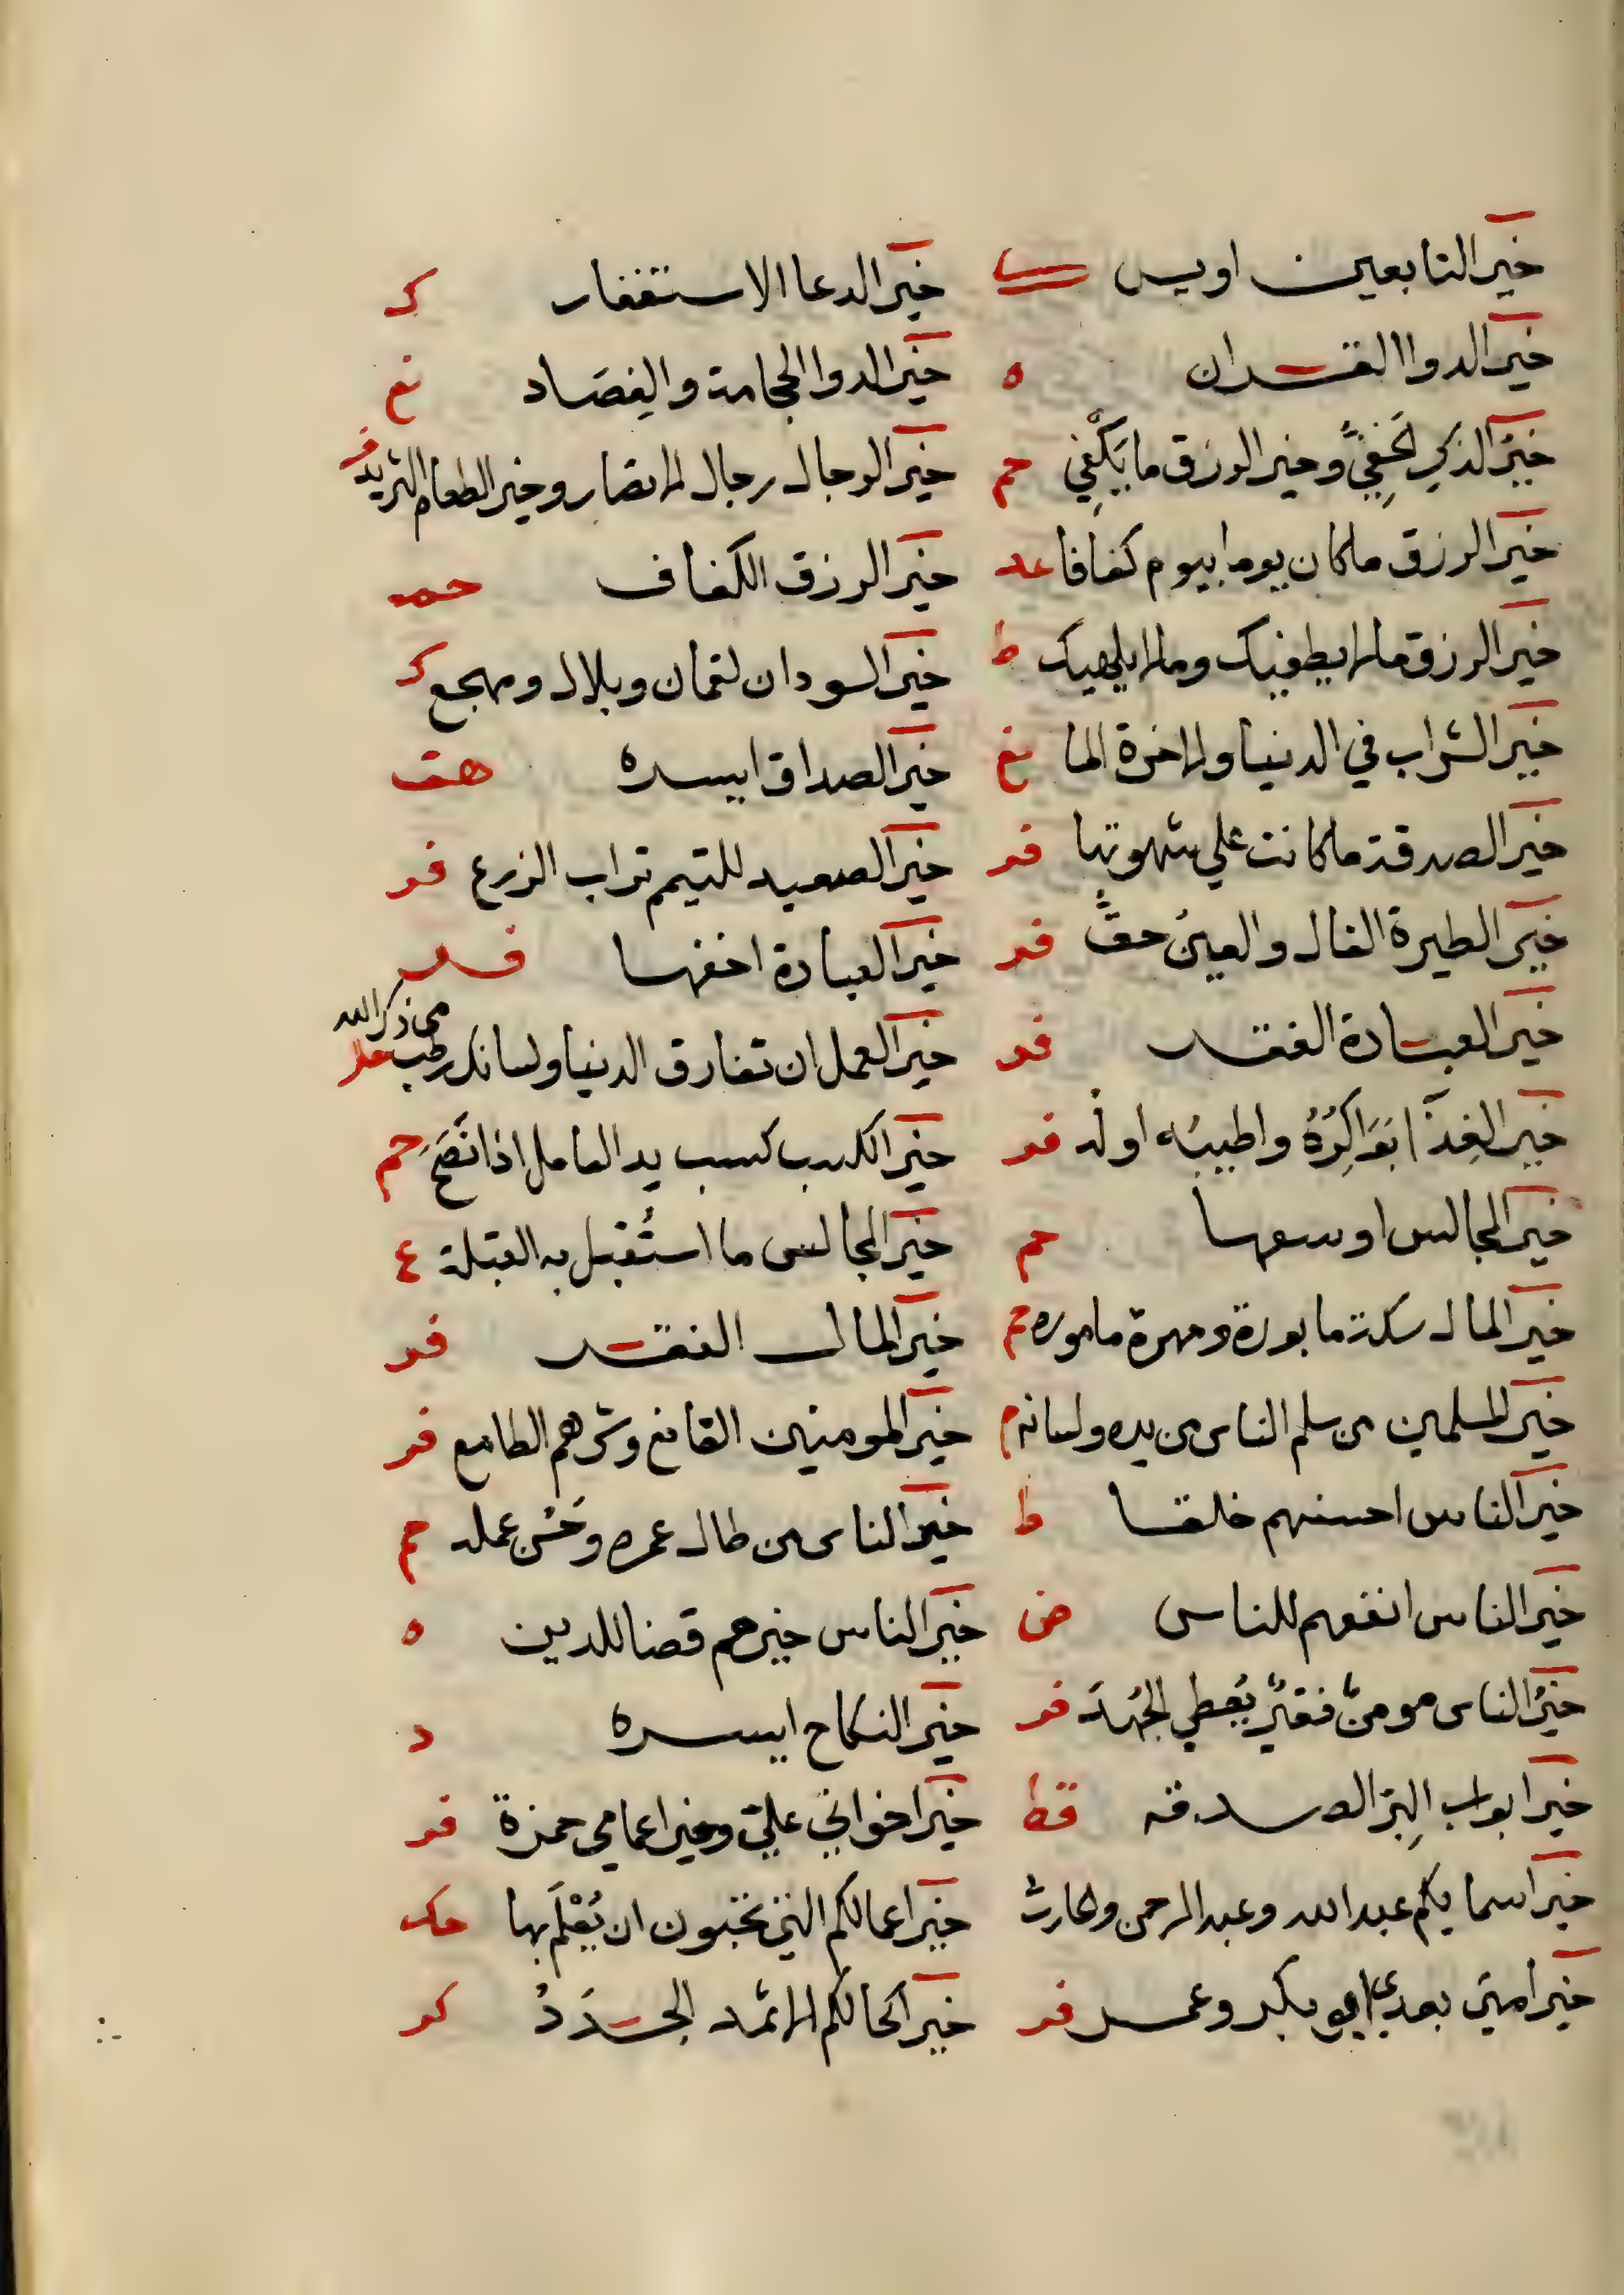 خير التابعين اويس ك خير الدعا الاستغفار ك
خير الدوا القران ه خير الدوا الحجامة والفِصَاد نع
خيرُ الذكرِ الخَفِيُّ وخير الرزق ما يَكْفِي حم خير الرجال رجال الانصار وخير الطعام الثريد فر
خير الرزق ما كان يوما بيوم كفافا عد خير الرزق الكفاف حمد
خير الرزق ما لا يطغيك وما لا يلهيك ط خير السودان لقمان وبلال ومهجع ك
خير الشراب في الدنيا والاخرة الما نع خير الصداق ايسره هق
خير الصدقة ما كانت علي شهوتها فر خير الصعيد للتيمم تراب الزرع فر
خير الطيرة الفال والعين حقٌّ فر خير العبادة اخفها فر
خير العبادة الفقر فر خير العمل ان تفارق الدنيا ولسانك رطب من ذكر الله حل
خير الغِذَآ بَوَاكِرُهُ واطيبُه اوله فر خير الكسب كسب يد العامل اذا نَصَحَ حم
خير المجالس اوسعها حم خير المجالس ما استُقبل به القبلة ع
خير المال سكة مابورة ومهرة ماموره حم خير المال الفقر فر
خير المسلمين من سلم الناس من يده ولسانه م خير المومنين القانع وشرهم الطامع فر
خير الناس احسنهم خلقا ط خير الناس من طال عمره وحَسُن عمله حم
خير الناس انفعهم للناس ض خير الناس خيرهم قضا للدين ه
خيرُ الناس مومنٌ فقيرٌ يُعطي الجُهدَ فر خير النكاح ايسره د
خير ابواب البِرّ الصدقه قط خير اخواني عليّ وخير اعمامي حمزة فر
خير اسمايكم عبد الله وعبد الرحمن والحارث خير اعمالكم التي تحبون ان يُعْلَم بها حك
خير امتي بعدي ابو بكر وعمر فر خير اكحالكم الاثمد الجَدَدُ كر